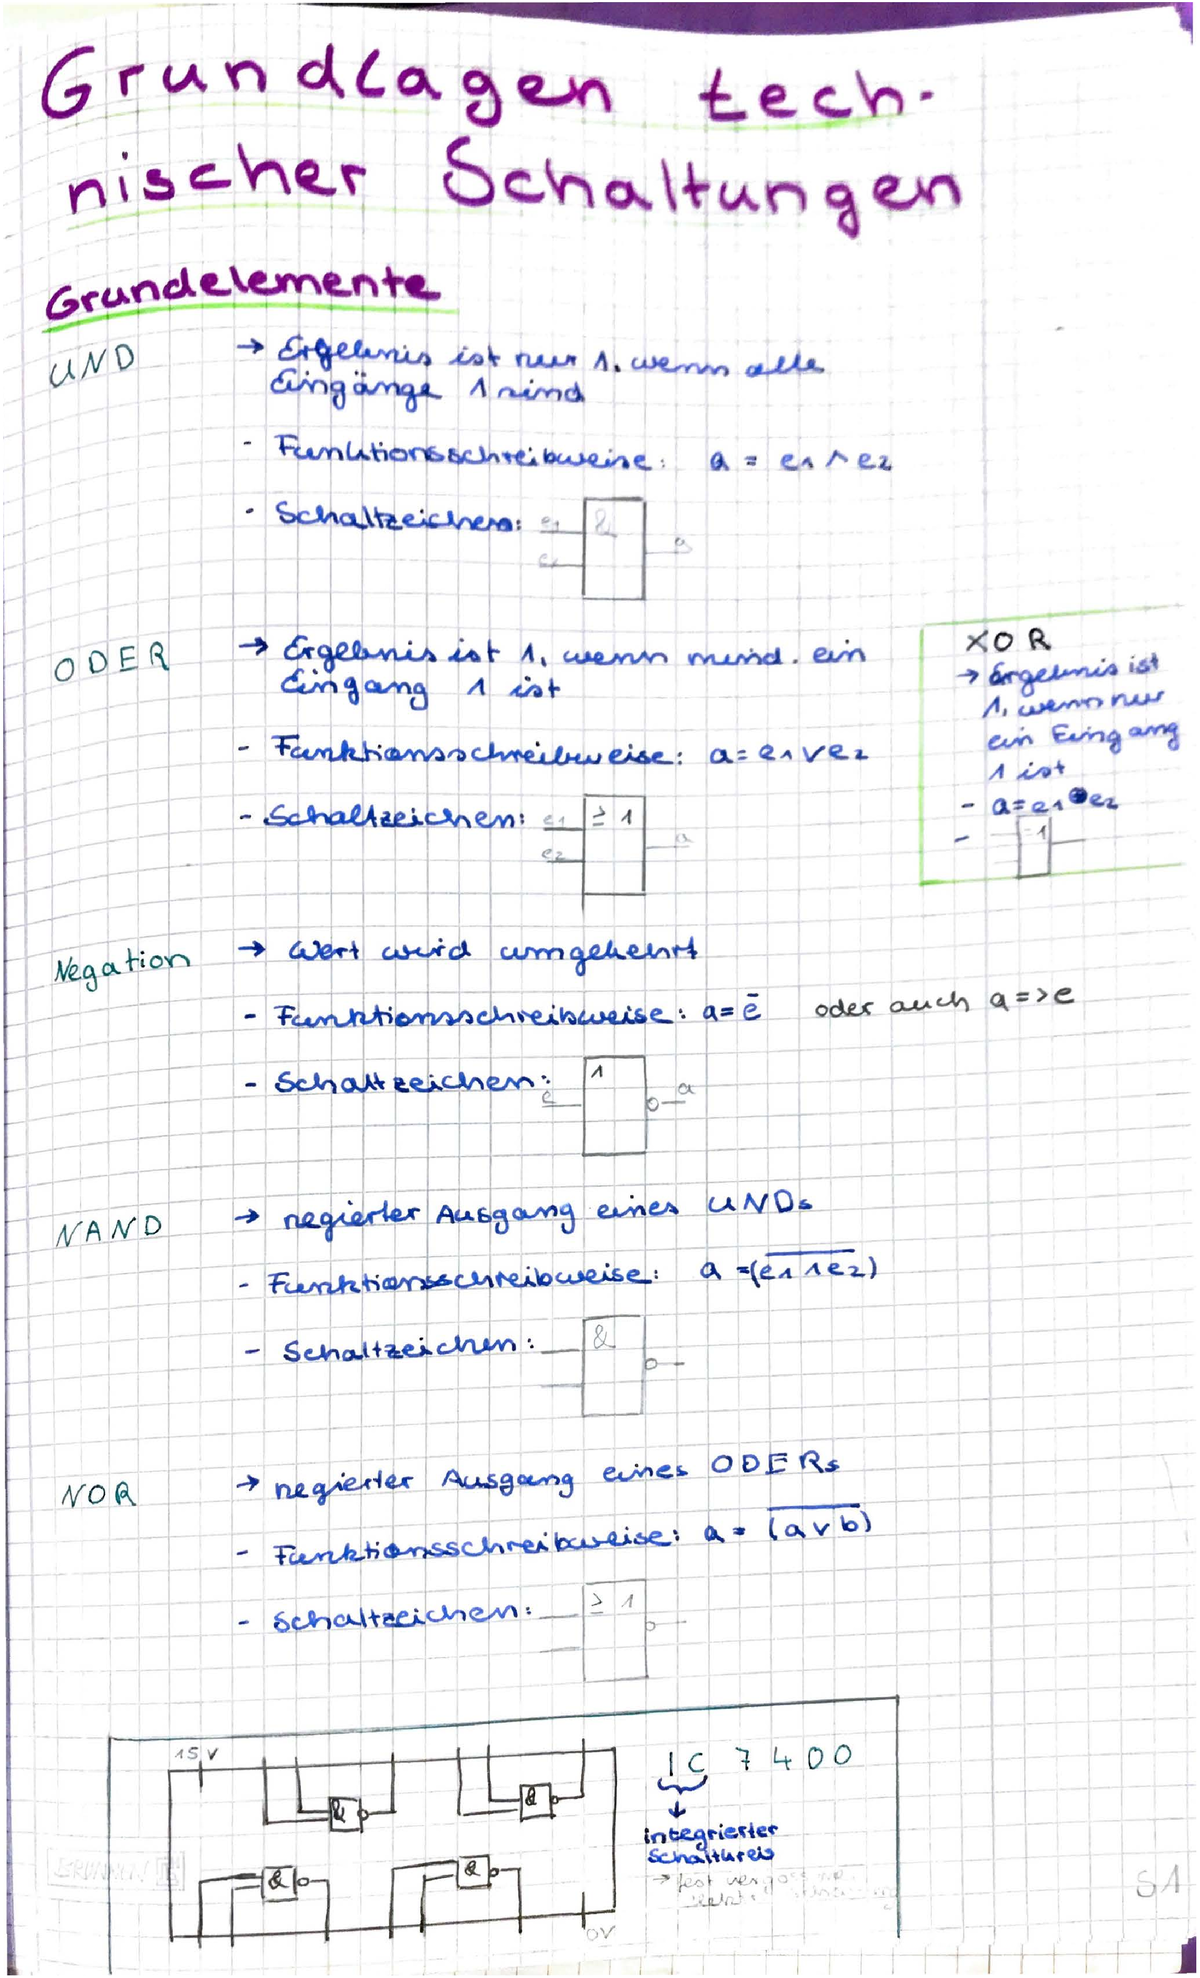 Grundlagen tech-
nischer Schaltungen
Grundelemente
UND → Ergebnis ist nur 1, wenn alle
Eingänge 1 sind
- Funktionsschreibweise: a = e1 ∧ e2
- Schaltzeichen: e1 & a
e2
ODER → Ergebnis ist 1, wenn mind. ein
Eingang 1 ist
- Funktionsschreibweise: a = e1 ∨ e2
- Schaltzeichen: e1 ≥ 1 a
e2
XOR
→ Ergebnis ist
1, wenn nur
ein Eingang
1 ist
- a = e1 e2
- =1
Negation → Wert wird umgekehrt
- Funktionsschreibweise: a = ē oder auch a => e
- Schaltzeichen: e 1 a
NAND → negierter Ausgang eines UNDs
- Funktionsschreibweise: a = (e1 ∧ e2)
- Schaltzeichen: &
NOR → negierter Ausgang eines ODERs
- Funktionsschreibweise: a = (a ∨ b)
- Schaltzeichen: ≥ 1
15 V
& &
& &
0V
IC 7400
↓
integrierter
Schaltkreis
→ fest
S1